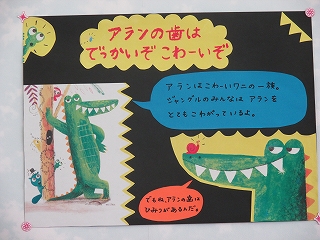 アランの歯は
でっかいぞ こわーいぞ
アランはこわーいワニの一族。
ジャングルのみんなは アランを
とてもこわがっているよ。
でもね、アランの歯は
ひみつがあるんだ。